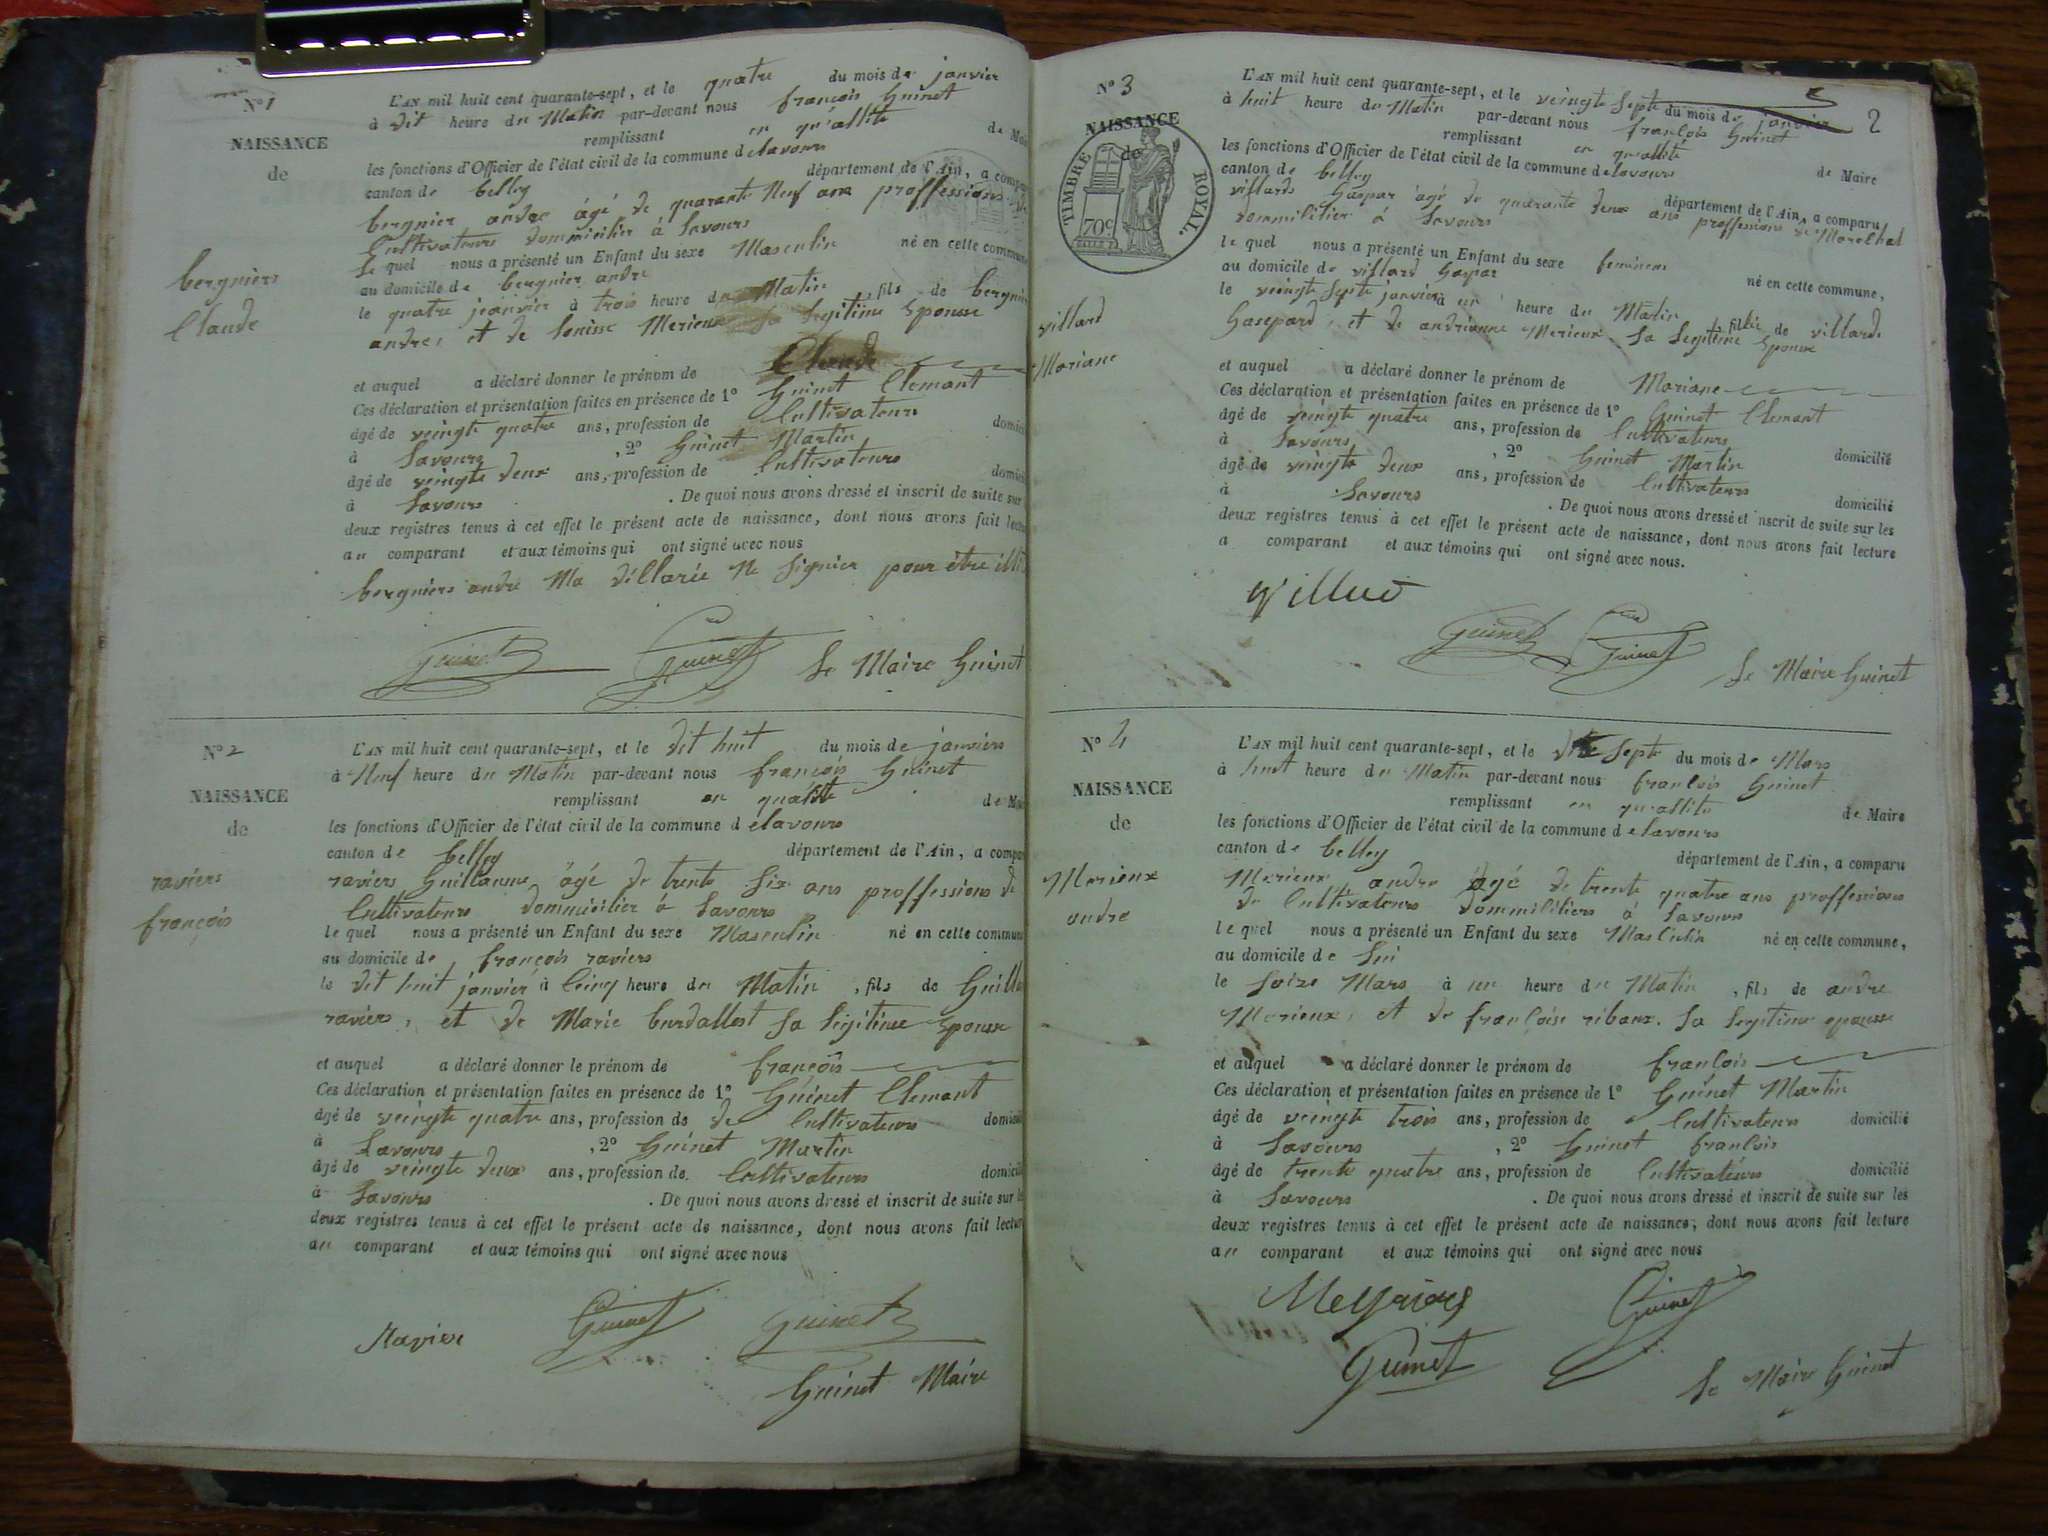 N° 1
L'AN mil huit cent quarante-sept, et le quatre du mois de janvier
à dit heure du Matin par-devant nous françois Guinet
remplissant en qu'allité de Mai
NAISSANCE
les fonctions d'Officier de l'état civil de la commune delavours
de
canton de belley département de l'Ain, a compa
bergnier andre âgé de quarante Neuf ans proffessions de
Cultivateurs dommicilier à Lavours
le quel nous a présenté un Enfant du sexe Masculin né en cette commune
bergniers
au domicile de bergnier andre
le quatre jeanvier à trois heure du Matin fils de bergnier
Claude
andre, et de Louisse Merieux Sa Legitime Epouse
et auquel a déclaré donner le prénom de Claude
Ces déclaration et présentation faites en présence de 1° Guinet Clemant
âgé de veingte quatre ans, profession de Cultivateurs domici
à Lavours , 2° Guinet Martin
âgé de veingte deux ans, profession de Cultivateurs domici
à Lavours . De quoi nous avons dressé et inscrit de suite sur
deux registres tenus à cet effet le présent acte de naissance, dont nous avons fait lectu
au comparant et aux témoins qui ont signé avec nous
bergniers andre Ma déllarée Ne Signier pour être
Guinet Guinet Le Maire Guinet
N° 2
L'AN mil huit cent quarante-sept, et le dit huit du mois de janviers
à Neuf heure du Matin par-devant nous françois Guinet
remplissant en quallité de Mai
NAISSANCE
les fonctions d'Officier de l'état civil de la commune d elavours
de
canton de belley département de l'Ain, a compar
raviers
raviers Guillaume âgé de trente Six ans proffessions de
Cultivateurs dommicilier à Lavours
françois
le quel nous a présenté un Enfant du sexe Masculin né en cette commune
au domicile de françois raviers
le dit huit janvier à Cinq heure du Matin , fils de Guilla
raviers, et de Marie burdallet Sa Legitime Epouse
et auquel a déclaré donner le prénom de françois
Ces déclaration et présentation faites en présence de 1° Guinet Clemant
âgé de veingte quatre ans, profession de de Cultivateurs domicil
à Lavours , 2° Guinet Martin
âgé de veingte deux ans, profession de Cultivateurs domicil
à Lavours . De quoi nous avons dressé et inscrit de suite sur le
deux registres tenus à cet effet le présent acte de naissance, dont nous avons fait lectur
au comparant et aux témoins qui ont signé avec nous
Ravier Guinet Guinet
Guinet Maire
2
N° 3
L'AN mil huit cent quarante-sept, et le veingte Sept du mois de janvier
à huit heure du Matin par-devant nous françois Guinet
remplissant en quallité de Maire
NAISSANCE
de
TIMBRE ROYAL.
70c
les fonctions d'Officier de l'état civil de la commune delavours
canton de belley département de l'Ain, a comparu
villards Gaspar âgé de quarante deux ans proffessions de Marechal
dommilitier à Lavours
le quel nous a présenté un Enfant du sexe feminin né en cette commune,
au domicile de villard Gaspar
le veingte Septe janvier à un heure du Matin , fille de villards
villard
Gasepard, et de andrianne Merieux Sa Legitime Epouse
Mariane
et auquel a déclaré donner le prénom de Mariane
Ces déclaration et présentation faites en présence de 1° Guinet Clemant
âgé de veingte quatre ans, profession de Cultivateurs
à Lavours , 2° Guinet Martin domicilié
âgé de veingte deux ans, profession de Cultivateurs
à Lavours . De quoi nous avons dressé et inscrit de suite sur les domicilié
deux registres tenus à cet effet le présent acte de naissance, dont nous avons fait lecture
a comparant et aux témoins qui ont signé avec nous.
Guinet Guinet
Le Maire Guinet
N° 4
L'AN mil huit cent quarante-sept, et le Sept du mois de Mars
à huit heure du Matin par-devant nous françois Guinet
remplissant en quallité de Maire
NAISSANCE
de
les fonctions d'Officier de l'état civil de la commune d elavours
canton de belley département de l'Ain, a comparu
Merieux
Merieux andre âgé de trente quatre ans proffessions
andre
de Cultivateurs dommilitiers à Lavours
le quel nous a présenté un Enfant du sexe Masculin né en cette commune,
au domicile de Lui
le Seize Mars à un heure du Matin , fils de andre
Merieux, et de françoise ribaux. Sa Legitime epousse
et auquel a déclaré donner le prénom de françois
Ces déclaration et présentation faites en présence de 1° Guinet Martin
âgé de veingte trois ans, profession de Cultivateurs domicilié
à Lavours , 2° Guinet françois
âgé de trente quatre ans, profession de Cultivateurs domicilié
à Lavours . De quoi nous avons dressé et inscrit de suite sur les
deux registres tenus à cet effet le présent acte de naissance, dont nous avons fait lecture
au comparant et aux témoins qui ont signé avec nous
Guinet
Guinet
Le Maire Guinet